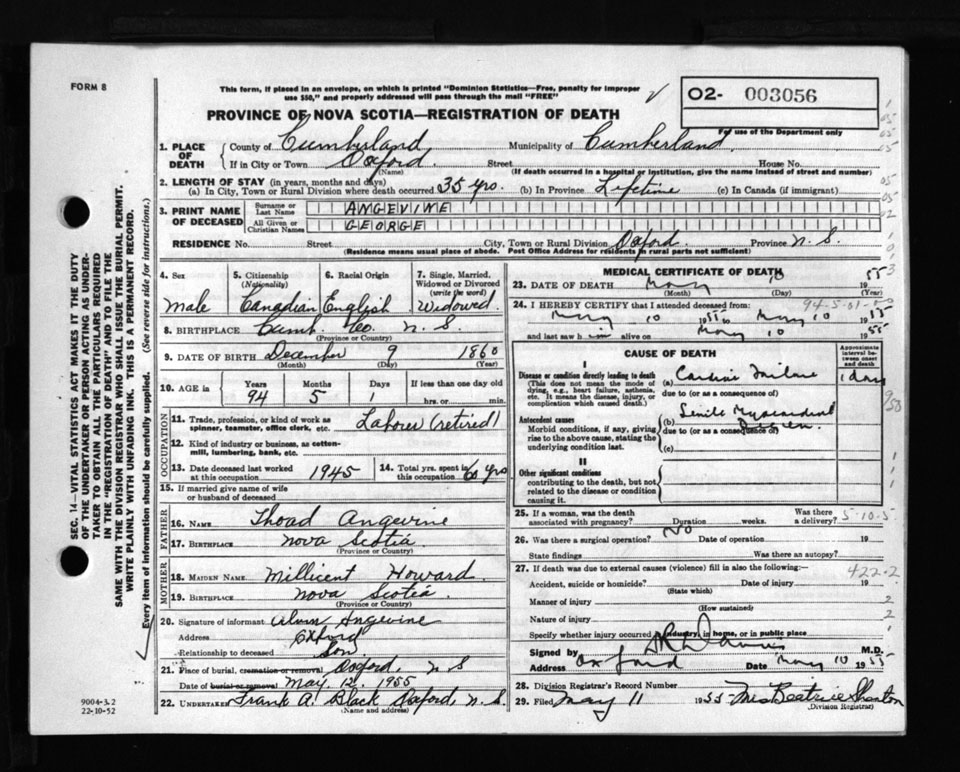 FORM 8
This form, if placed in an envelope, on which is printed "Dominion Statistics—Free, penalty for improper
use $50," and properly addressed will pass through the mail "FREE"
O2- 003056
For use of the Department only
PROVINCE OF NOVA SCOTIA—REGISTRATION OF DEATH
1. PLACE OF DEATH
County of Cumberland Municipality of Cumberland
If in City or Town Oxford Street House No.
(Name) (If death occurred in a hospital or institution, give the name instead of street and number)
2. LENGTH OF STAY (in years, months and days)
(a) In City, Town or Rural Division where death occurred 35 yrs. (b) In Province Lifetime (c) In Canada (if immigrant)
3. PRINT NAME OF DECEASED
Surname or Last Name ANGEVINE
All Given or Christian Names GEORGE
RESIDENCE No. Street City, Town or Rural Division Oxford Province N.S.
(Residence means usual place of abode. Post Office Address for residents in rural parts not sufficient)
4. Sex Male
5. Citizenship (Nationality) Canadian
6. Racial Origin English
7. Single, Married, Widowed or Divorced (write the word) Widowed
8. BIRTHPLACE Cumb. Co. N.S.
(Province or Country)
9. DATE OF BIRTH December 9 1860
(Month) (Day) (Year)
10. AGE in Years Months Days If less than one day old
94 5 1 hrs. or min.
OCCUPATION
11. Trade, profession, or kind of work as spinner, teamster, office clerk, etc. Laborer (retired)
12. Kind of industry or business, as cotton-mill, lumbering, bank, etc.
13. Date deceased last worked at this occupation 1945
14. Total yrs. spent in this occupation 60 yrs
15. If married give name of wife or husband of deceased
FATHER
16. NAME Thoad Angevine
17. BIRTHPLACE Nova Scotia
(Province or Country)
MOTHER
18. MAIDEN NAME Millicent Howard
19. BIRTHPLACE Nova Scotia
(Province or Country)
20. Signature of informant Alvin Angevine
Address Oxford
Relationship to deceased Son
21. Place of burial, cremation or removal Oxford, N S
Date of burial or removal May 12, 1955
22. UNDERTAKER Frank A. Black Oxford, N.S.
(Name and address)
MEDICAL CERTIFICATE OF DEATH
23. DATE OF DEATH May 10 1955
(Month) (Day)
24. I HEREBY CERTIFY that I attended deceased from:
94-5-01-
May 10 1955 to May 10 1955
and last saw him alive on May 10 1955
CAUSE OF DEATH
Approximate interval between onset and death
I
Disease or condition directly leading to death
(This does not mean the mode of dying, e.g., heart failure, asthenia, etc. It means the disease, injury, or complication which caused death.)
(a) Cardiac Failure 1 day
due to (or as a consequence of)
Antecedent causes
Morbid conditions, if any, giving rise to the above cause, stating the underlying condition last.
(b) Senile Myocardial
due to (or as a consequence of)
(c)
II
Other significant conditions
contributing to the death, but not related to the disease or condition causing it.
25. If a woman, was the death associated with pregnancy? Duration weeks. Was there a delivery?
5-10-5
26. Was there a surgical operation? No Date of operation 19
State findings Was there an autopsy?
27. If death was due to external causes (violence) fill in also the following:—
422-2
Accident, suicide or homicide? Date of injury 19
(State which)
Manner of injury
(How sustained)
Nature of injury
Specify whether injury occurred in industry, in home, or in public place
Signed by M.D.
Address Oxford Date May 10 1955
28. Division Registrar's Record Number
29. Filed May 11 1955 Mrs Beatrice
(Division Registrar)
SEC. 14—VITAL STATISTICS ACT MAKES IT THE DUTY
OF THE UNDERTAKER OR PERSON ACTING AS UNDER-
TAKER TO OBTAIN ALL THE PARTICULARS REQUIRED
IN THE "REGISTRATION OF DEATH" AND TO FILE THE
SAME WITH THE DIVISION REGISTRAR WHO SHALL ISSUE THE BURIAL PERMIT.
WRITE PLAINLY WITH UNFADING INK. THIS IS A PERMANENT RECORD.
Every item of information should be carefully supplied. (See reverse side for instructions.)
9004-3.2
22-10-52